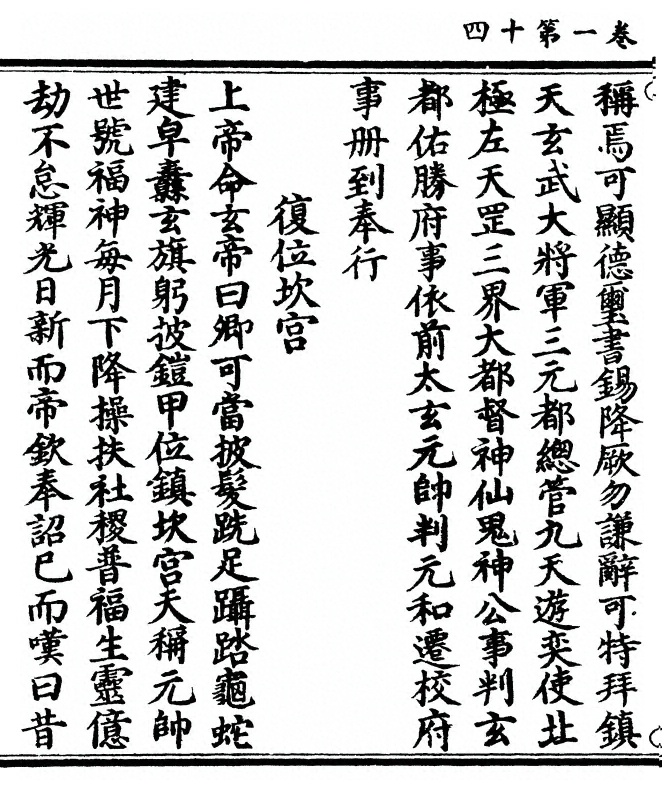 卷一第十四
稱焉可顯德璽書錫降厥勿謙辭可特拜鎮
天玄武大將軍三元都總管九天遊奕使北
極左天罡三界大都督神仙鬼神公事判玄
都佑勝府事依前太玄元帥判元和遷校府
事册到奉行
復位坎宮
上帝命玄帝曰卿可當披髮跣足躡踏龜蛇
建皁纛玄旗躬披鎧甲位鎮坎宮天稱元帥
世號福神每月下降操扶社稷普福生靈億
劫不怠輝光日新而帝欽奉詔已而嘆曰昔